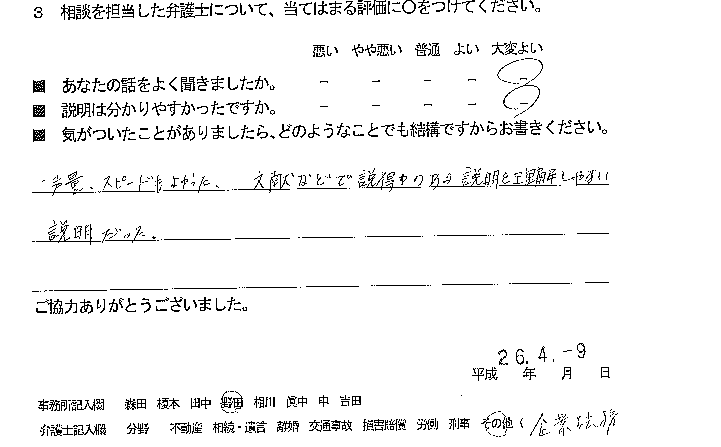 3 相談を担当した弁護士について、当てはまる評価に〇をつけてください。
悪い やや悪い 普通 よい 大変よい
あなたの話をよく聞きましたか。 - - - - -
説明は分かりやすかったですか。 - - - - -
気がついたことがありましたら、どのようなことでも結構ですからお書きください。
声量、スピードもよかった、文献などで説得力のある説明と理解しやすい
説明だった。
ご協力ありがとうございました。
26.4.-9
平成 年 月 日
事務所記入欄 森田 榎本 田中 野田 相川 眞中 申 吉田
弁護士記入欄 分野 不動産 相続・遺言 離婚 交通事故 損害賠償 労働 刑事 その他 ( 企業法務